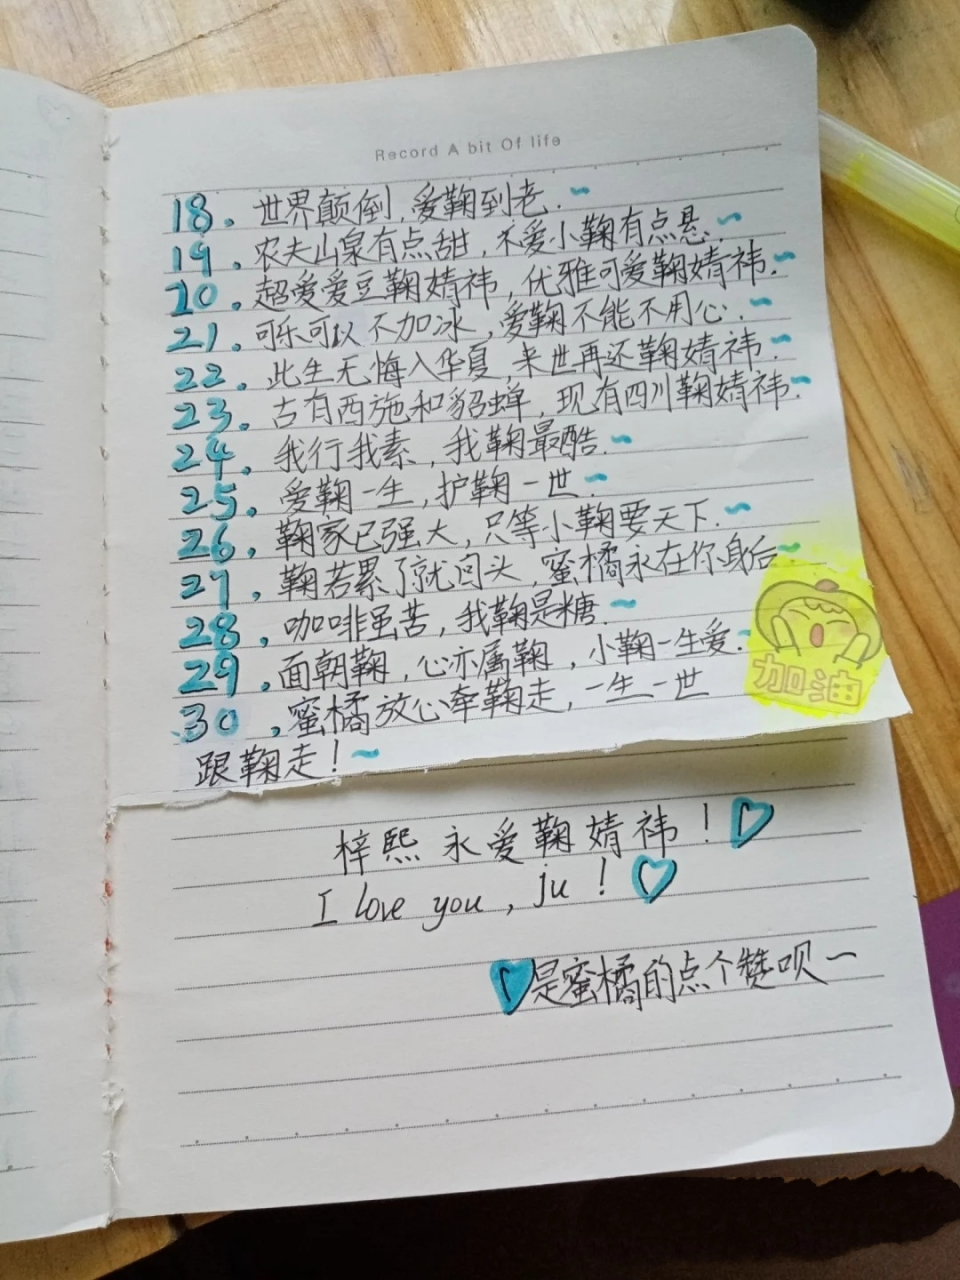 Record A bit Of life
18. 世界颠倒,爱鞠到老.~
19. 农夫山泉有点甜,不爱小鞠有点悬.~
20. 超爱爱豆鞠婧祎,优雅可爱鞠婧祎.~
21. 可乐可以不加冰,爱鞠不能不用心.~
22. 此生无悔入华夏,来世再还鞠婧祎.~
23. 古有西施和貂蝉,现有四川鞠婧祎.~
24. 我行我素,我鞠最酷.~
25. 爱鞠一生,护鞠一世.~
26. 鞠家已强大,只等小鞠要天下.~
27. 鞠若累了就回头,蜜橘永在你身后~
28. 咖啡虽苦,我鞠是糖.~
29. 面朝鞠,心亦属鞠,小鞠一生爱.~
30. 蜜橘放心牵鞠走,一生一世
跟鞠走!~
加油
梓熙永爱鞠婧祎!
I love you, ju!
是蜜橘的点个赞呗~